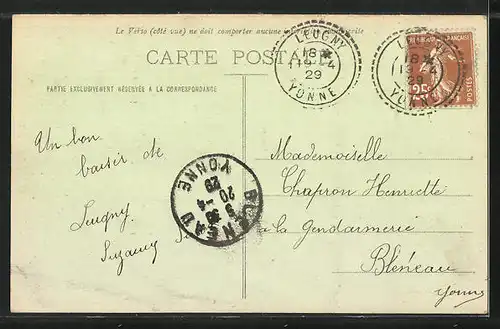 Le Verso (côté vue) ne doit comporter aucune
CARTE POSTALE
PARTIE EXCLUSIVEMENT RÉSERVÉE A LA CORRESPONDANCE
LEUGNY
18*
19-4
29
YONNE
LEUGNY
18*
19-4
29
YONNE
FRANÇAISE
POSTES
25c
Un bon
baiser de
Leugny
Suzanne
BLENEAU
20-4
29
YONNE
Mademoiselle
Chapron Henriette
à la Gendarmerie
Bléneau
Yonne